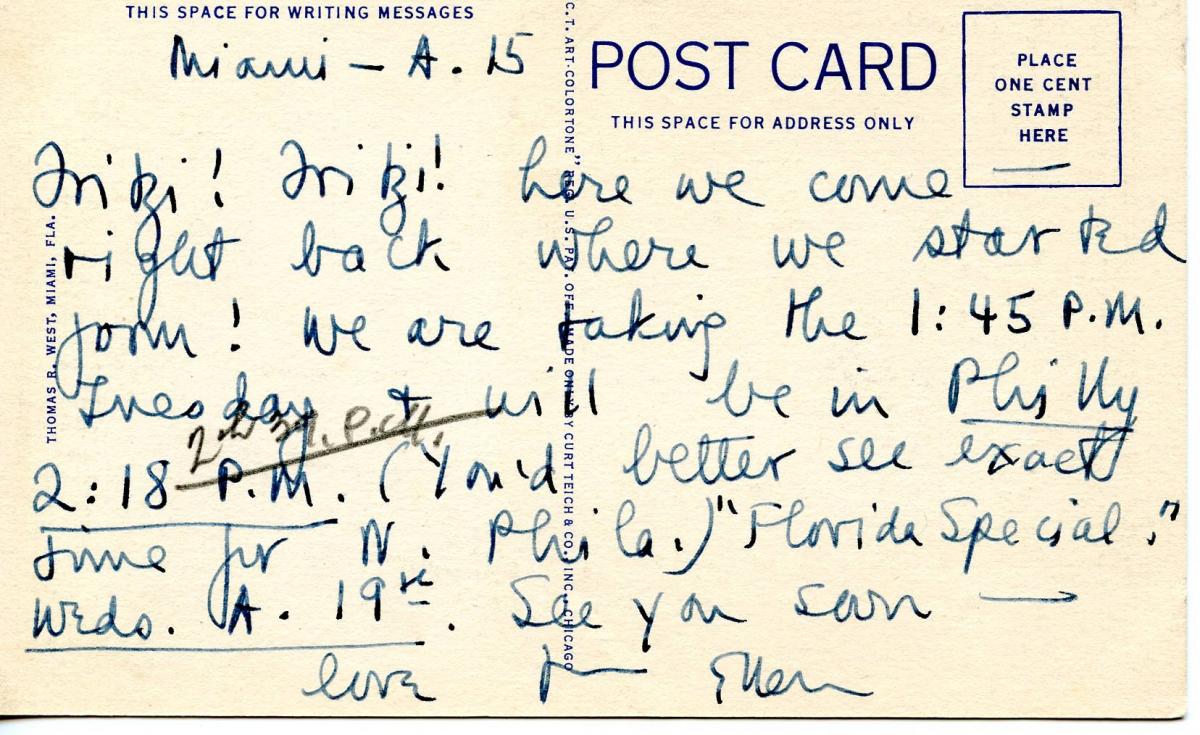 THIS SPACE FOR WRITING MESSAGES
Miami — A. 15
POST CARD
THIS SPACE FOR ADDRESS ONLY
PLACE
ONE CENT
STAMP
HERE
C.T. ART-COLORTONE" REG. U.S. PAT. OFF. MADE ONLY BY CURT TEICH & CO., INC., CHICAGO
THOMAS R. WEST, MIAMI, FLA.
Fritzi! Fritzi! here we come
right back where we started
from! We are taking the 1:45 P.M.
Tuesday + will be in Philly
P.M.
2:18 P.M. (You'd better see exact
time for N. Phila.) "Florida Special."
Weds. A. 19th. See you soon —
love from Ellen